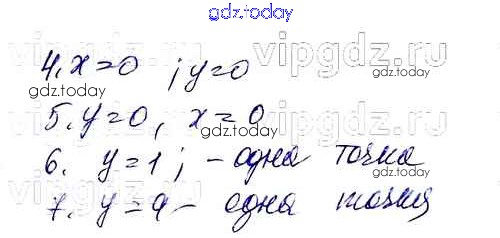 gdz.today
gdz.today
vipgdz.ru
4. x=0 ; y=0
gdz.today
5. y=0, x=0
gdz.today
6. y=1; - одна точка
7. y=9 - одна точка
gdz.today